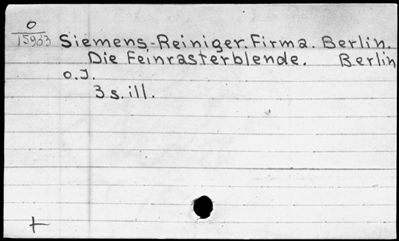 O
15963
Siemens-Reiniger. Firma. Berlin.
Die Feinrasterblende. Berlin
o.J.
3 s. ill.